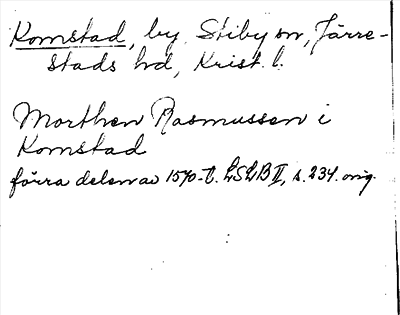 Komstad, by Stiby sn, Järre-
stads hd, Krist. l.
Morthen Rasmussen i
Komstad
förra delen av 1570-t. LSLB II, s. 234. orig.